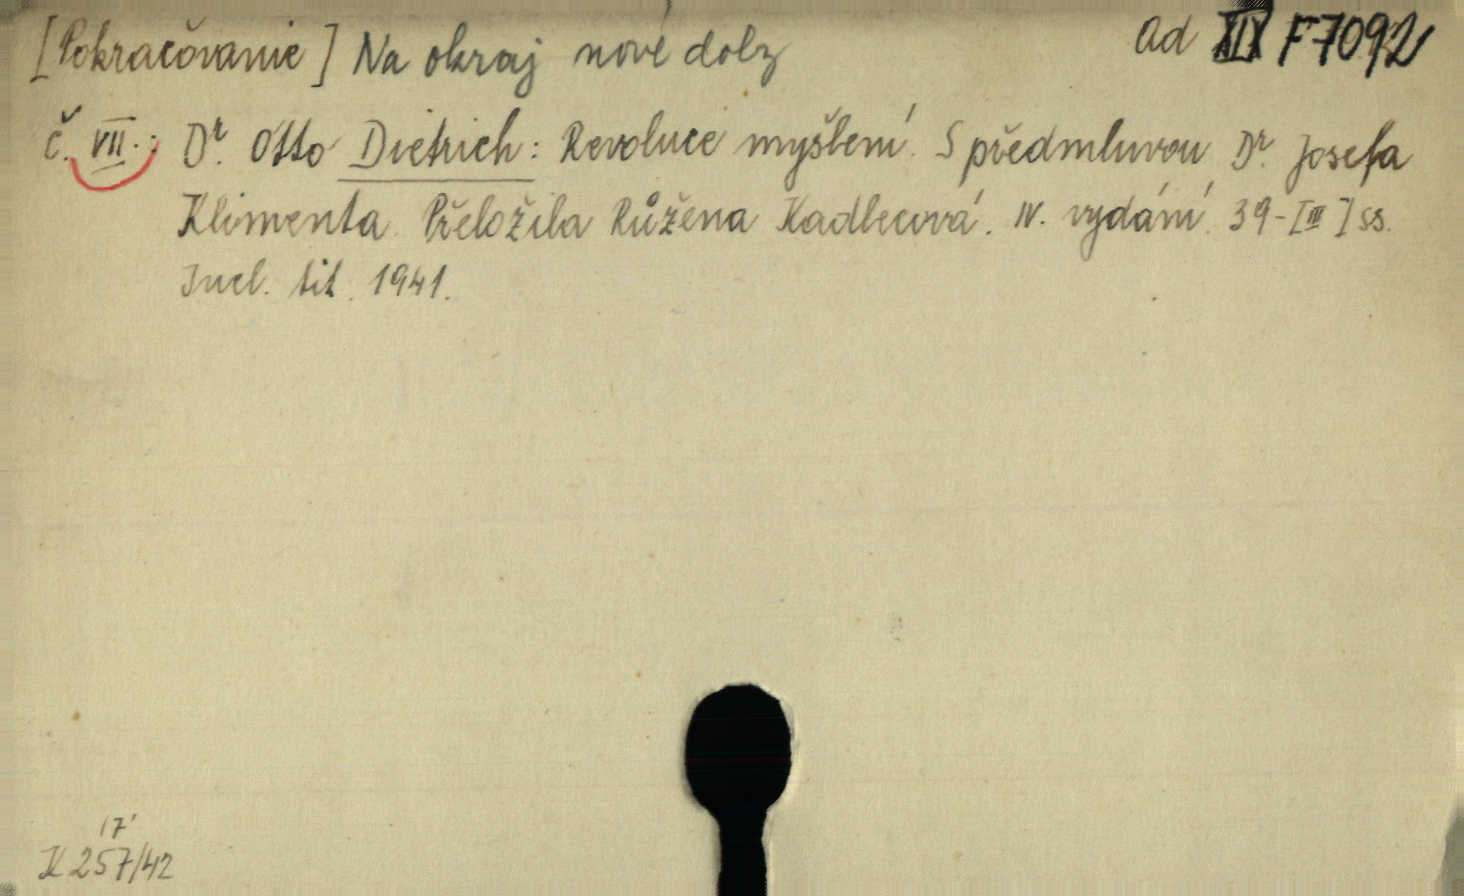 [Pokračovanie] Na okraj nové doby
Ad XLIX F 7092
č. VII.: Dr. Otto Dietrich: Revoluce myšlení. S předmluvou Dr. Josefa
Klimenta. Přeložila Růžena Kadlecová. IV. vydání. 39-[III] ss.
Incl. tit. 1941.
17'
K 257/42